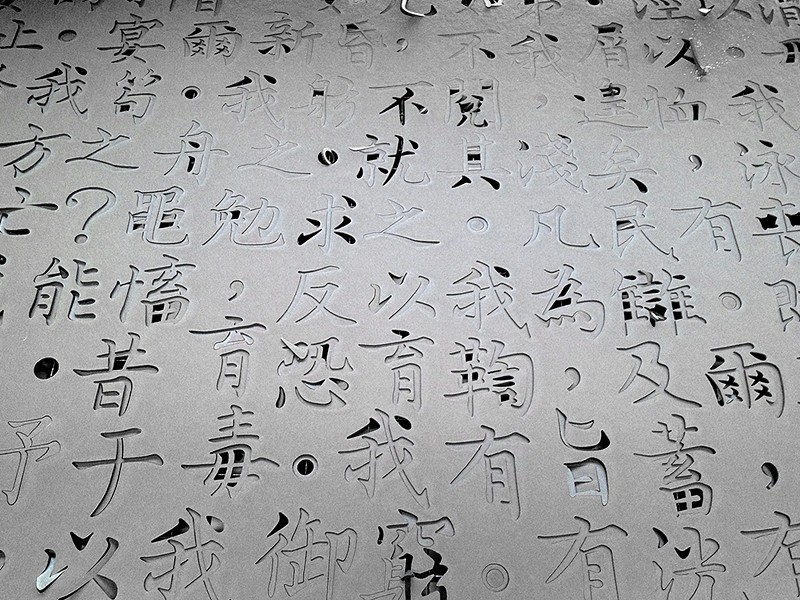 涇以渭
。宴爾新昏,不我屑以。毋
我笱。我躬不閱,遑恤我
方之舟之。就其淺矣,泳
亡?黽勉求之。凡民有喪
能慉,反以我為讎。
。昔育恐育鞫,及爾
予于毒。我有旨蓄,
以我御窮。有洸有